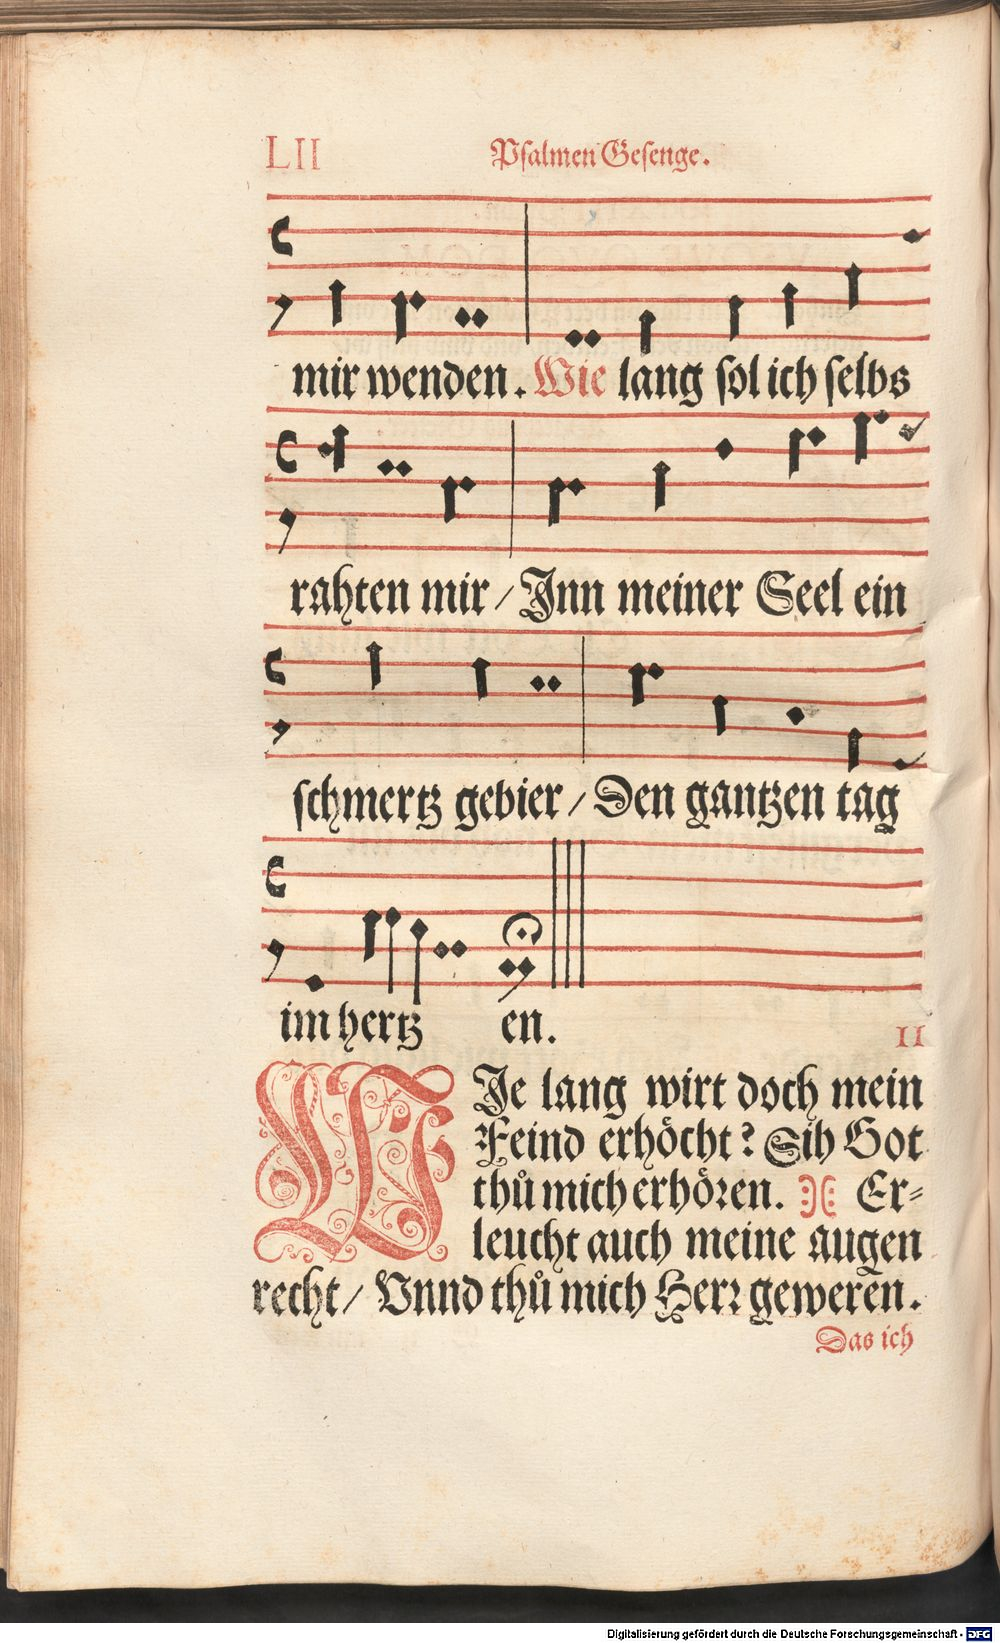 LII Psalmen Gesenge.
mir wenden. Wie lang sol ich selbs
rahten mir / Jnn meiner Seel ein
schmertz gebier / Den gantzen tag
im hertz en.
II
WJe lang wirt doch mein
Feind erhöcht? Sih Got
thů mich erhören. Er⸗
leucht auch meine augen
recht / Vnnd thů mich Herr geweren.
Das ich
Digitalisierung gefördert durch die Deutsche Forschungsgemeinschaft - DFG